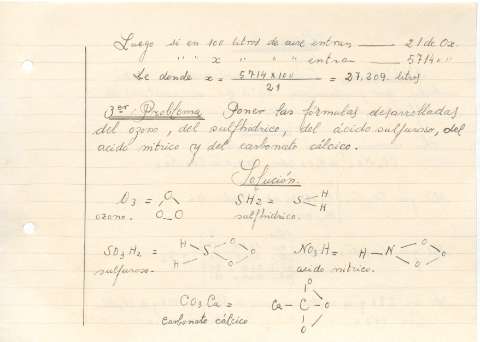 Luego si en 100 litros de aire entran — 21 de Ox.
" " x " " " entra — 5714 " "
de donde x = 5714 x 100 / 21 = 27,209. litros
3er Problema Poner las fórmulas desarrolladas
del ozono, del sulfhídrico, del ácido sulfuroso, del
acido nítrico y del carbonato cálcico.
Solución.
O3 = O O_O SH2 = S H H
ozono. sulfhídrico.
SO3H2 = H H S O O O NO3H = H-N O O O
sulfuroso. acido nítrico.
CO3Ca = Ca-C O O O
carbonato cálcico